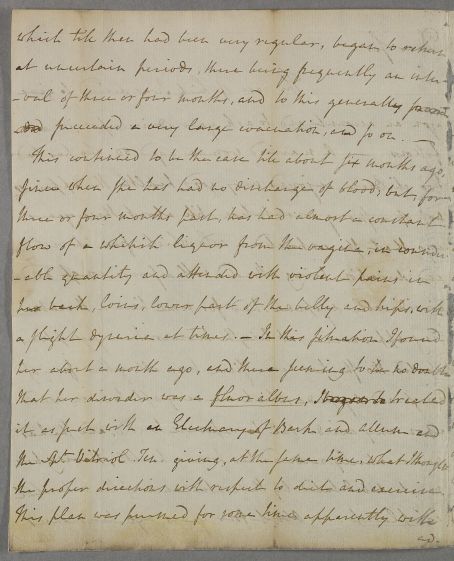 which till then had been very regular, began to return
at uncertain periods, there being frequently an inter
-val of three or four months, and to this generally
preceeded a very large evacuation, and so on. —
This continued to be the case till about six months ago,
since when she has had no discharge of blood, but, for
three or four months past, has had almost a constant
flow of a whitish liquor from the vagina, in consider
-able quantity and attended with violent pains in
her back, loins, lower part of the belly and hips, with
a slight dysuria at times. — In this situation I found
her about a month ago, and there seeming to be no doubt
that her disorder was a fluor albus, I treated
it as such with an Electuary of Bark and allum and
the Vitriol Ten. giving, at the same time, what I thought
the proper directions with respect to diet and exercise
This plan was pursued for some time apparently with
ad-